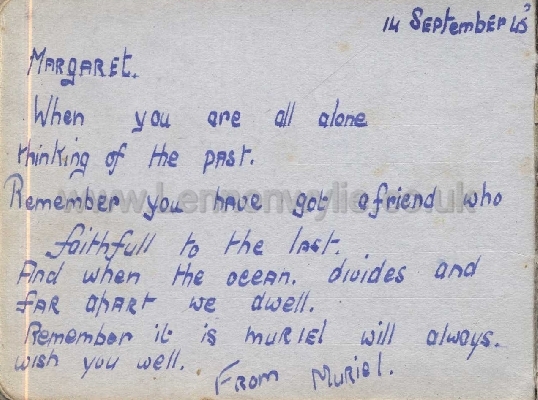 14 September 45
Margaret.
When you are all alone
thinking of the past.
Remember you have got a friend who
faithfull to the last.
And when the ocean. divides and
far apart we dwell.
Remember it is Muriel will always.
wish you well.
From Muriel.
www.Lennonwylie.co.uk